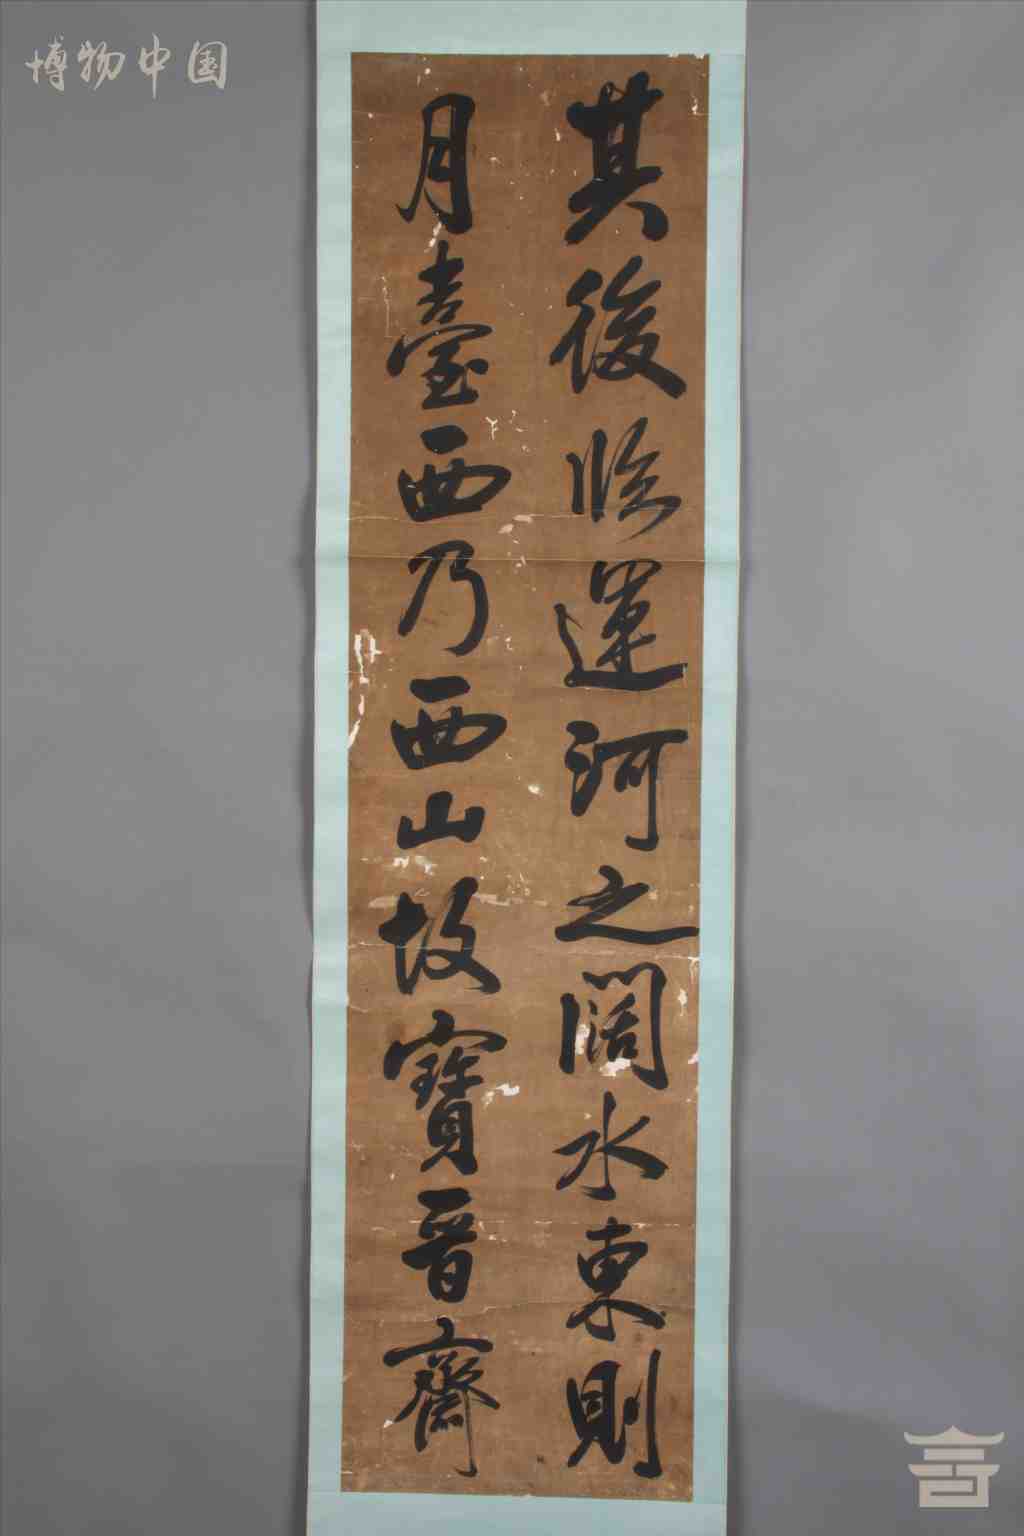 博物中国
其後臨運河之闊水東則
月臺西乃西山故寶晉齋